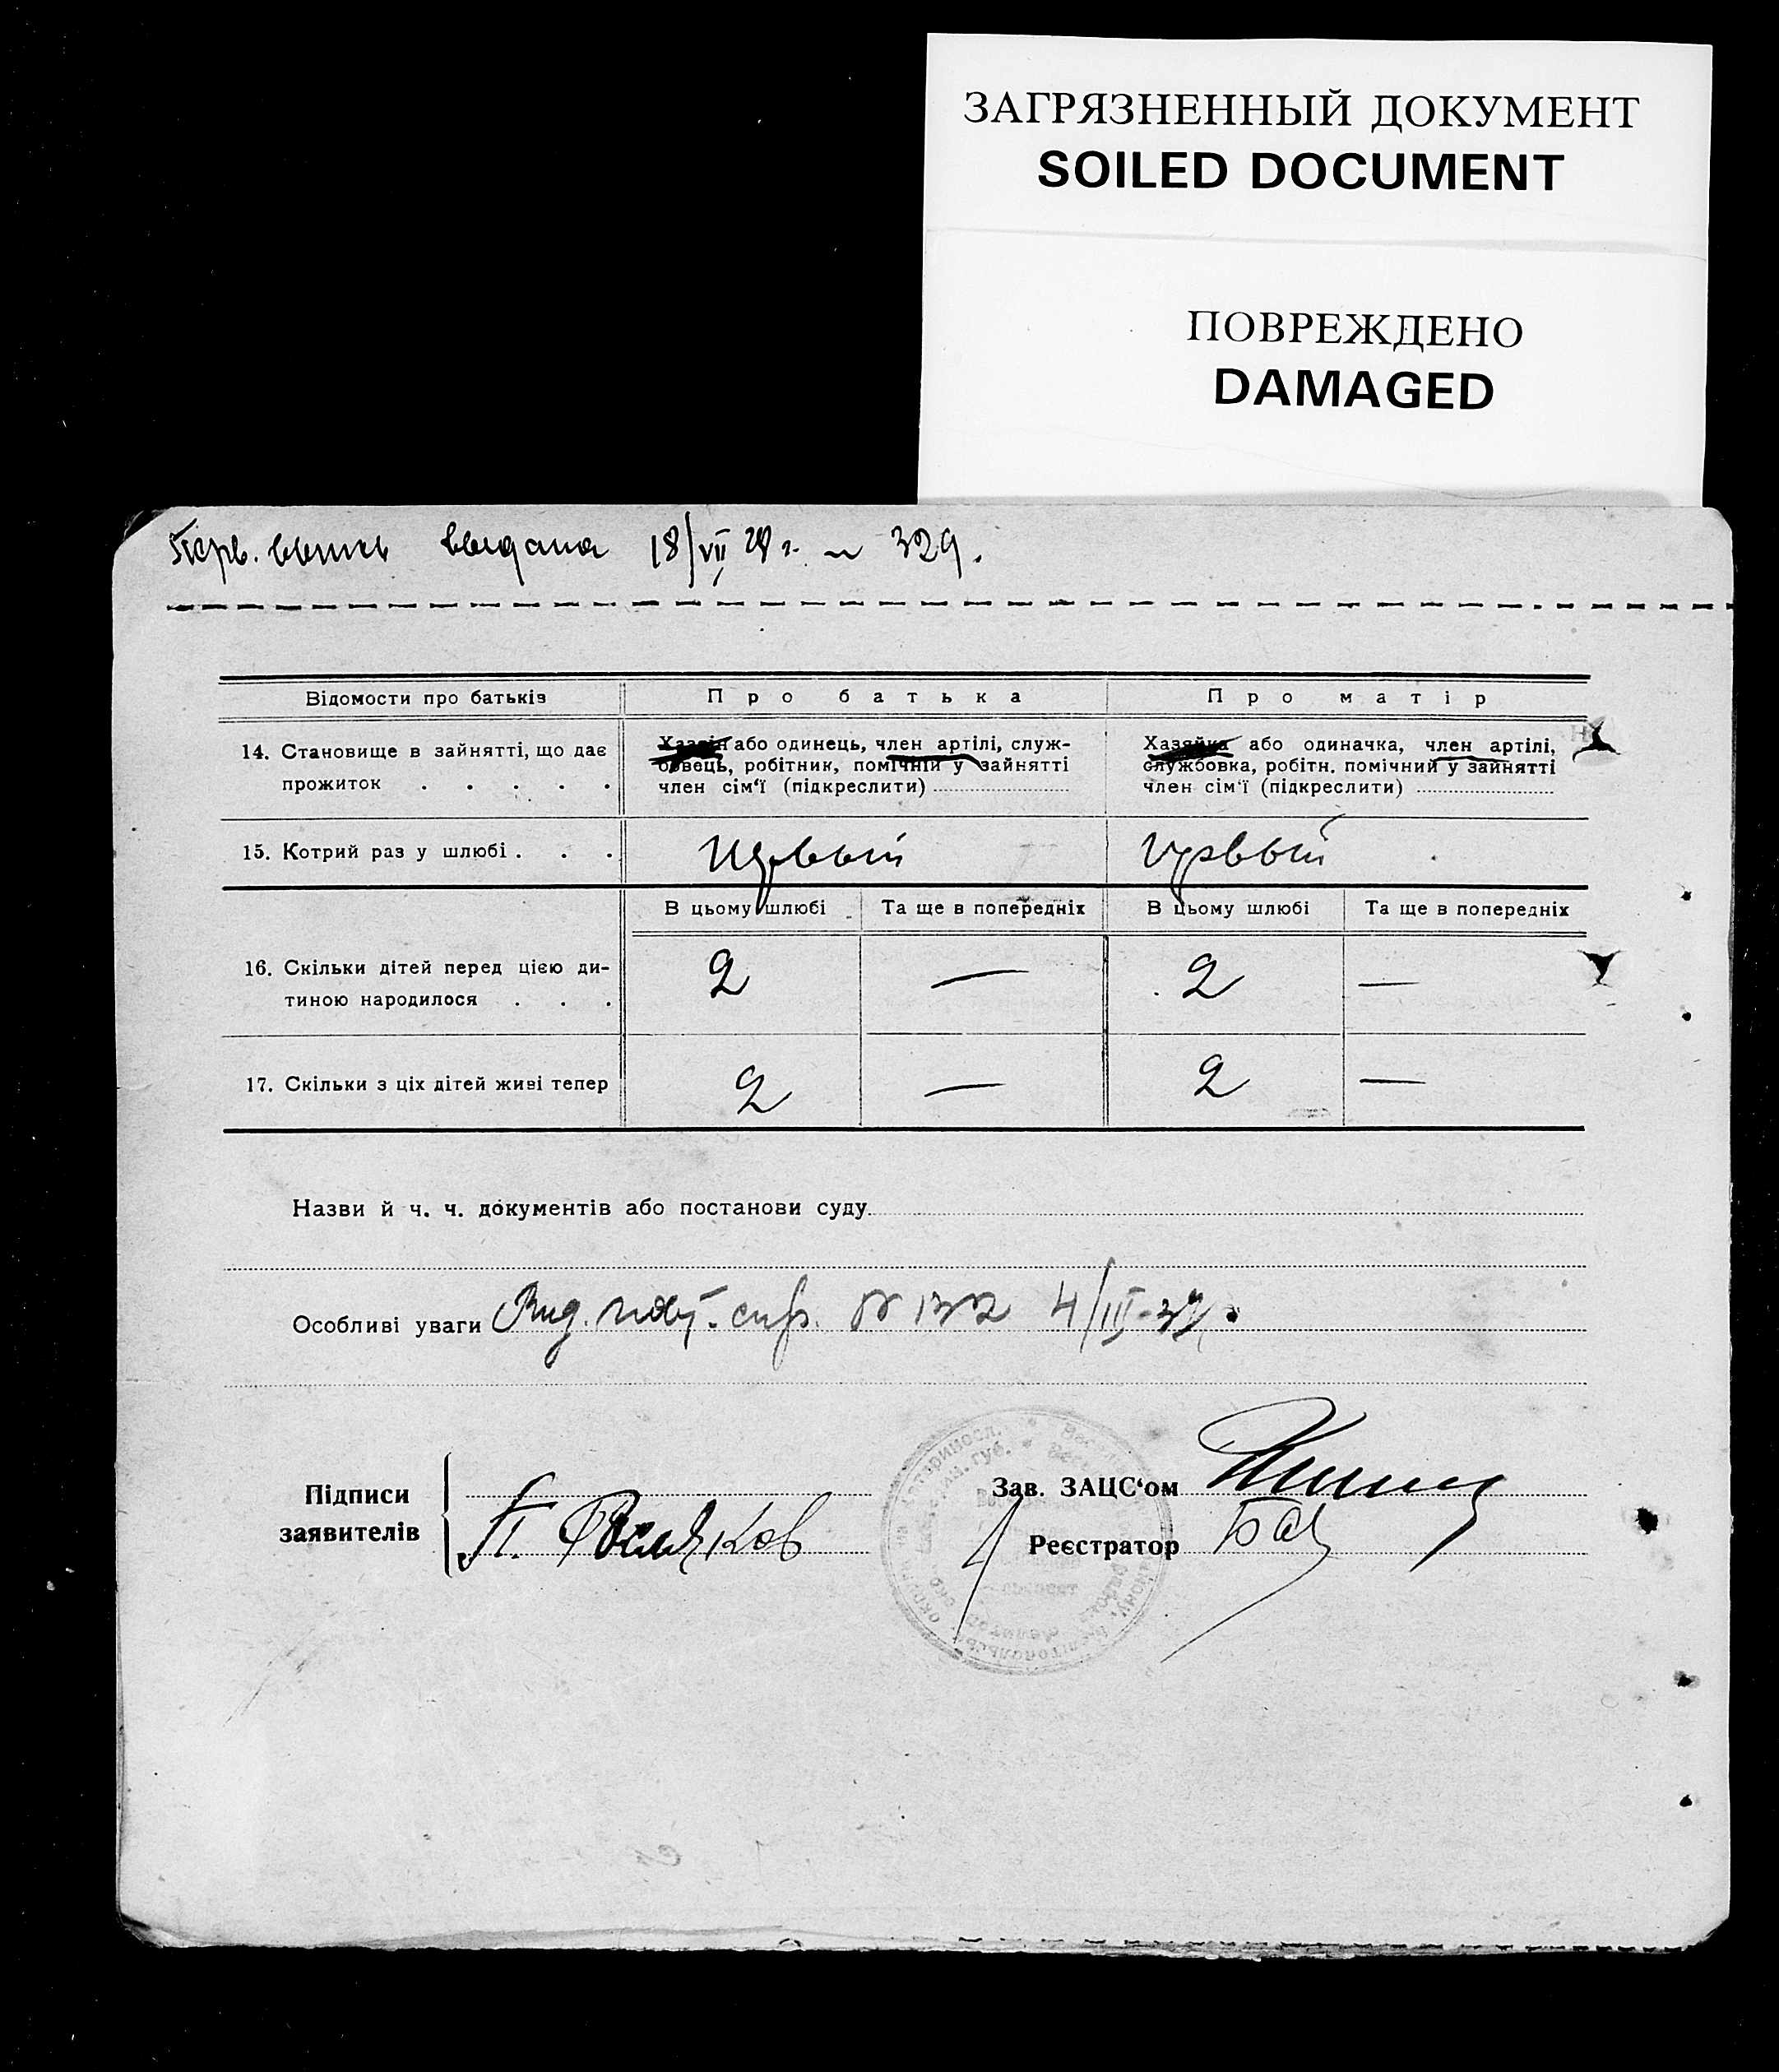 ЗАГРЯЗНЕННЫЙ ДОКУМЕНТ
SOILED DOCUMENT
ПОВРЕЖДЕНО
DAMAGED
Перв. выпись выдана 18/VII 28 г. № 329.
Відомости про батьків Про батька Про матір
14. Становище в зайнятті, що дає
прожиток . . . . .
Хазяїн або одинець, член артілі, служ-
бовець, робітник, помічний у зайнятті
член сім'ї (підкреслити)
Хазяйка або одиначка, член артілі,
службовка, робітн. помічний у зайнятті
член сім'ї (підкреслити)
15. Котрий раз у шлюбі . . . первый первый
В цьому шлюбі Та ще в попередніх В цьому шлюбі Та ще в попередніх
16. Скільки дітей перед цією ди-
тиною народилося . . . 2 — 2 —
17. Скільки з ціх дітей живі тепер 2 — 2 —
Назви й ч. ч. документів або постанови суду
Особливі уваги Вид. повт. № 132 4/III-37
Підписи
заявителів
П.
Зав. ЗАЦС'ом
Реєстратор